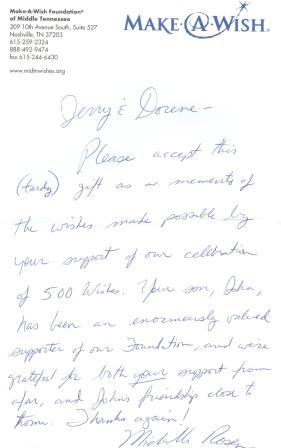 Make-A-Wish Foundation®
of Middle Tennessee
209 10th Avenue South, Suite 527
Nashville, TN 37203
615-259-2324
888-492-9474
fax 615-244-6430
www.midtnwishes.org
MAKE-A-WISH®
Jerry & Dorene -
Please accept this
(tardy) gift as a memento of
the wishes made possible by
your support of our celebration
of 500 Wishes. Your son, John,
has been an enormously valued
supporter of our Foundation, and we're
grateful for both your support from
afar, and John's friendship close to
home. Thanks again!
Michelle